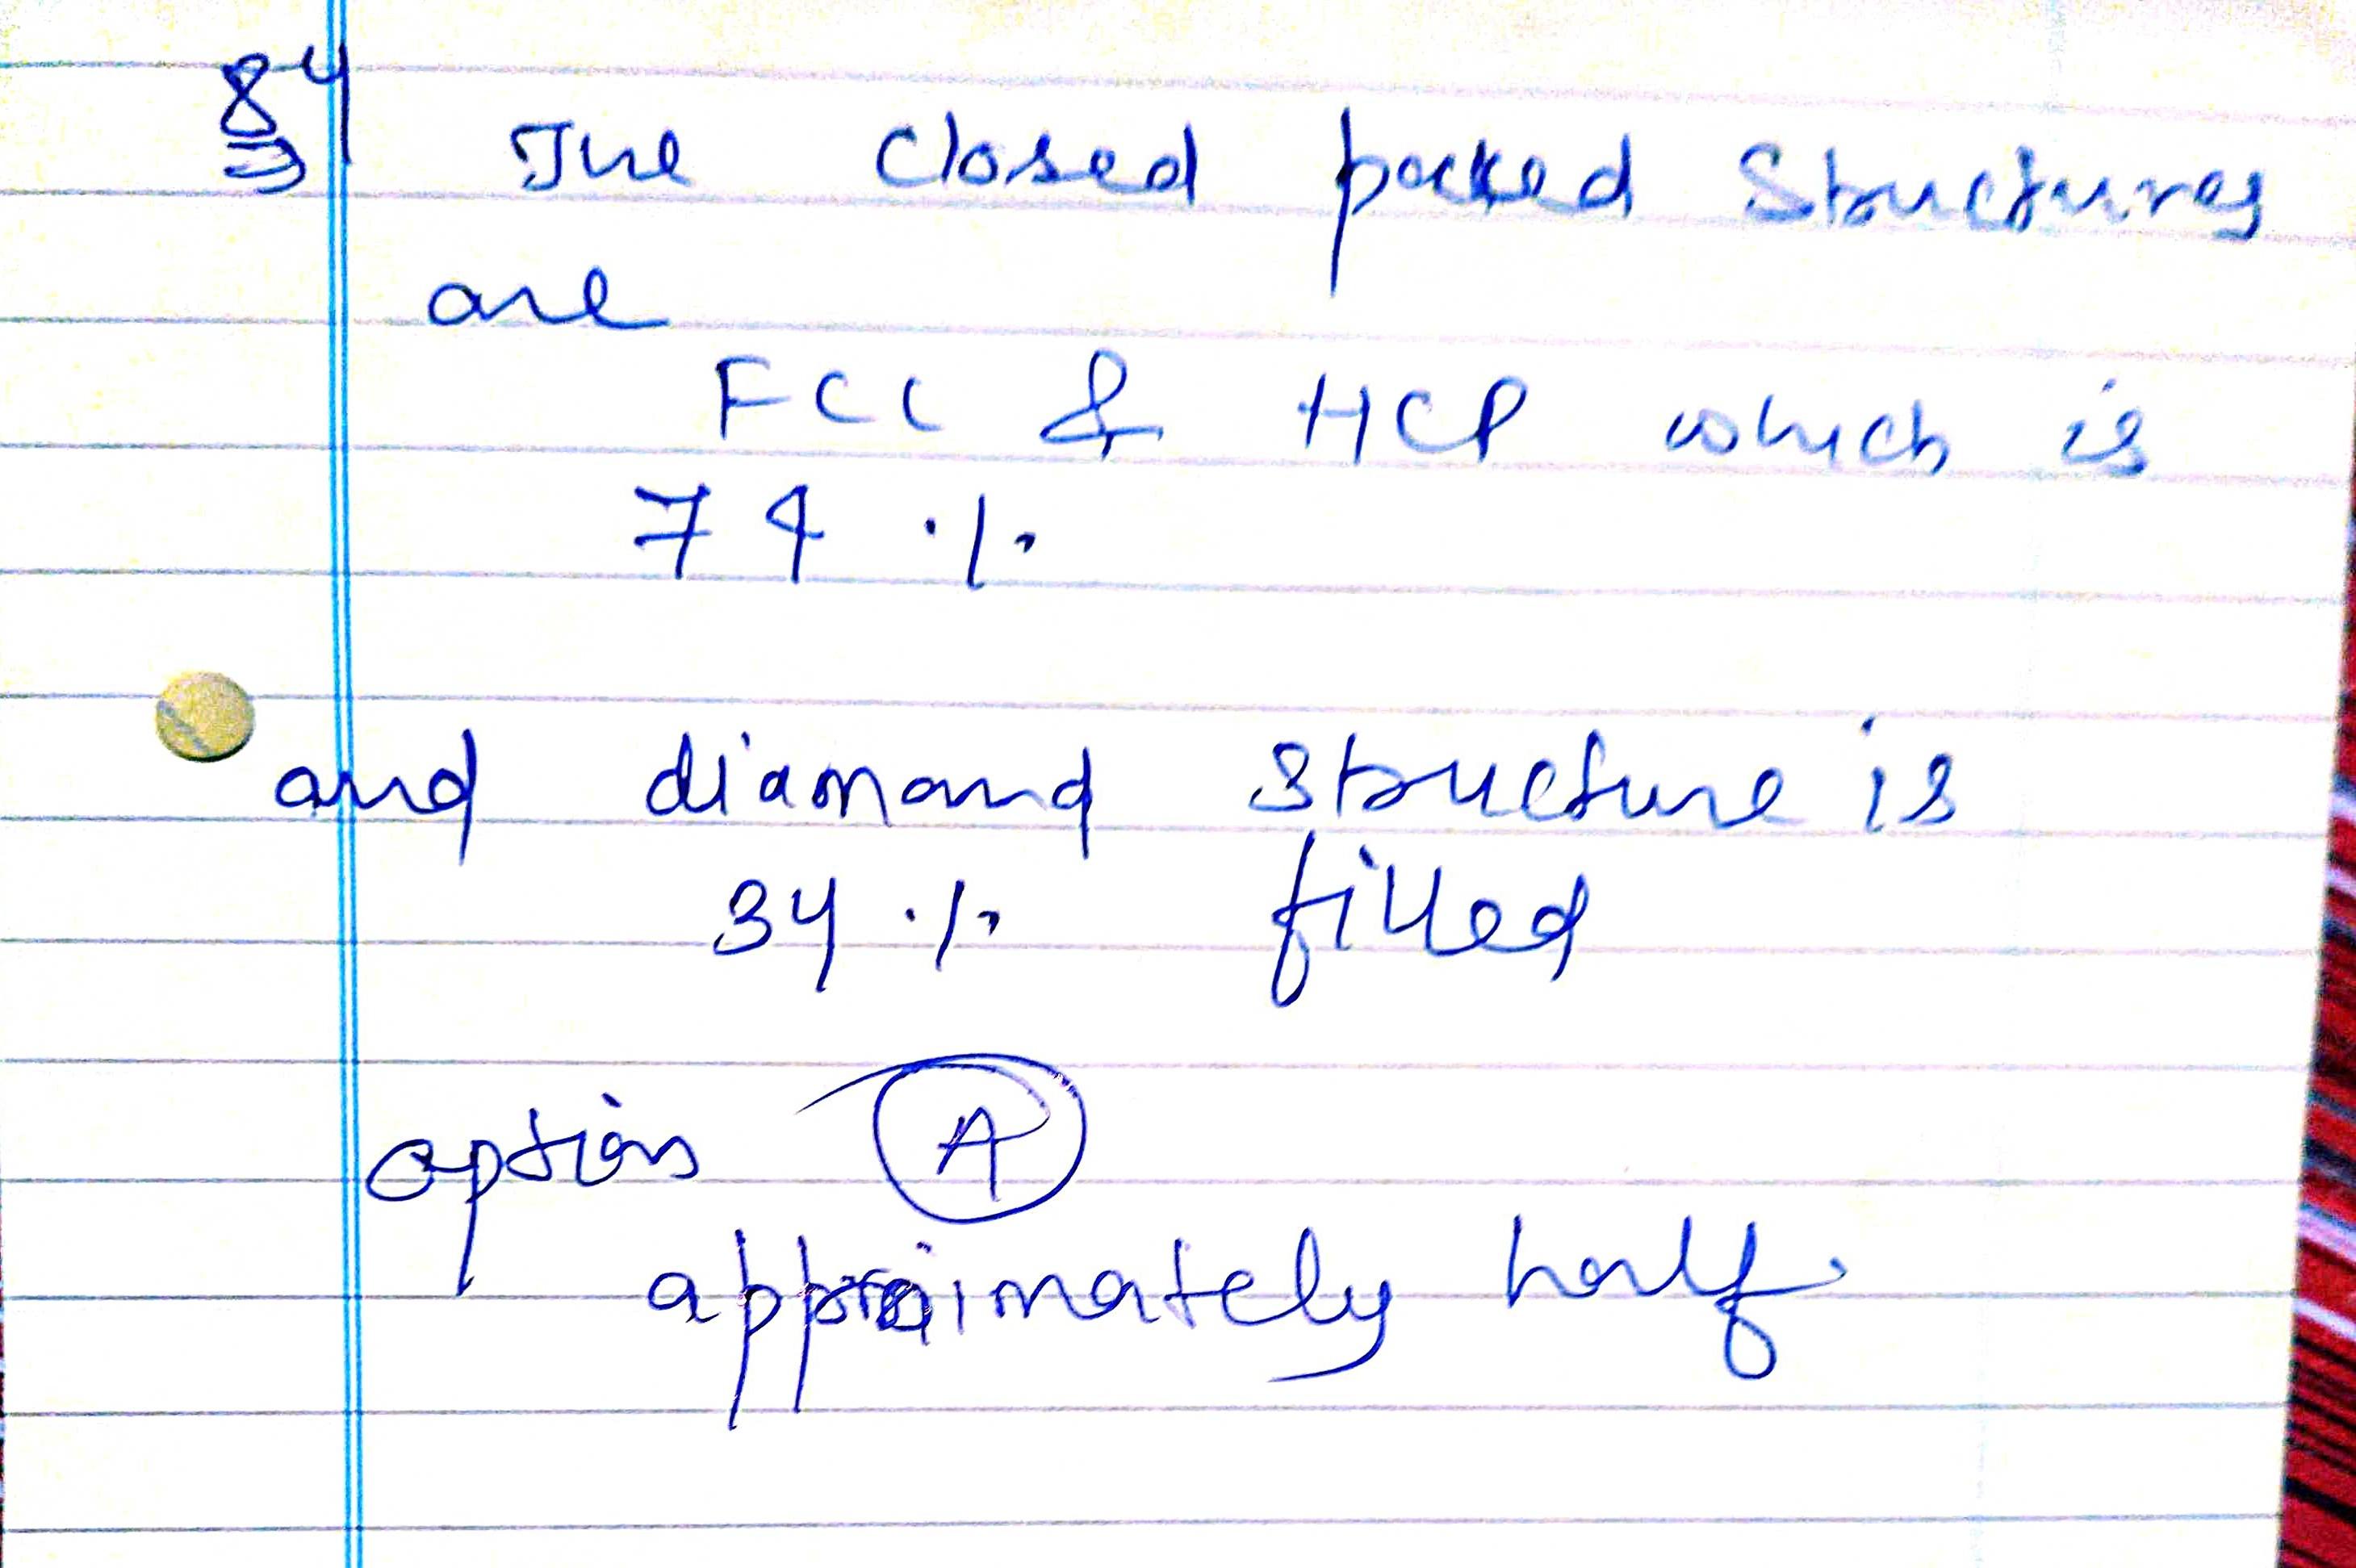 84
The closed packed structures
are
FCC & HCP which is
74 %
and diamond structure is
34 % filled
option A
approimately half